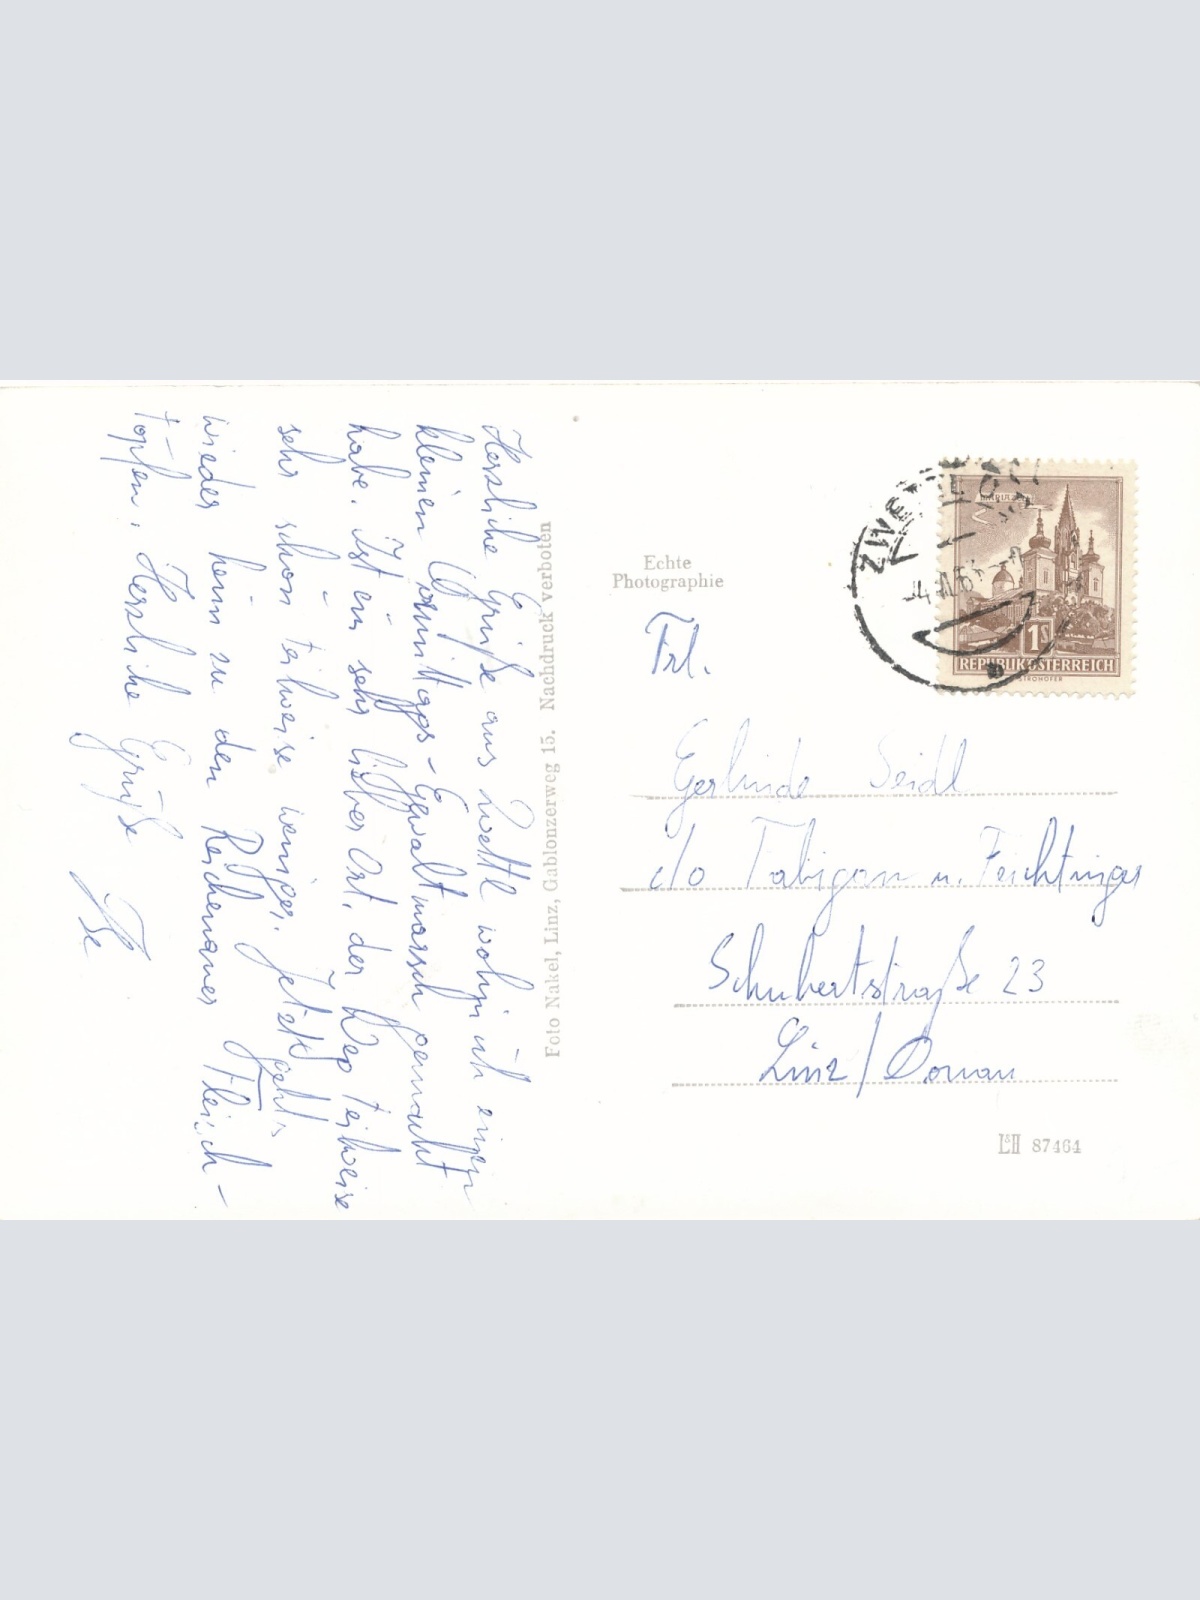 Herzliche Grüße aus Zwettl wohin ich einen
kleinen Vormittags-Gewaltmarsch gemacht
habe. Ist ein sehr lieber Ort, der Weg teilweise
sehr schön teilweise weniger. Jetzt geht's
wieder heim zu den Reichenauer Fleisch-
töpfen. Herzliche Grüße
Ilse
Foto Nakel, Linz, Gablonzerweg 15. Nachdruck verboten
Echte
Photographie
Frl.
Gerlinde Seidl
c/o Tabigan u. Feichtinger
Schubertstraße 23
Linz/Donau
L&H 87464
1S
REPUBLIK ÖSTERREICH
STROHOFER